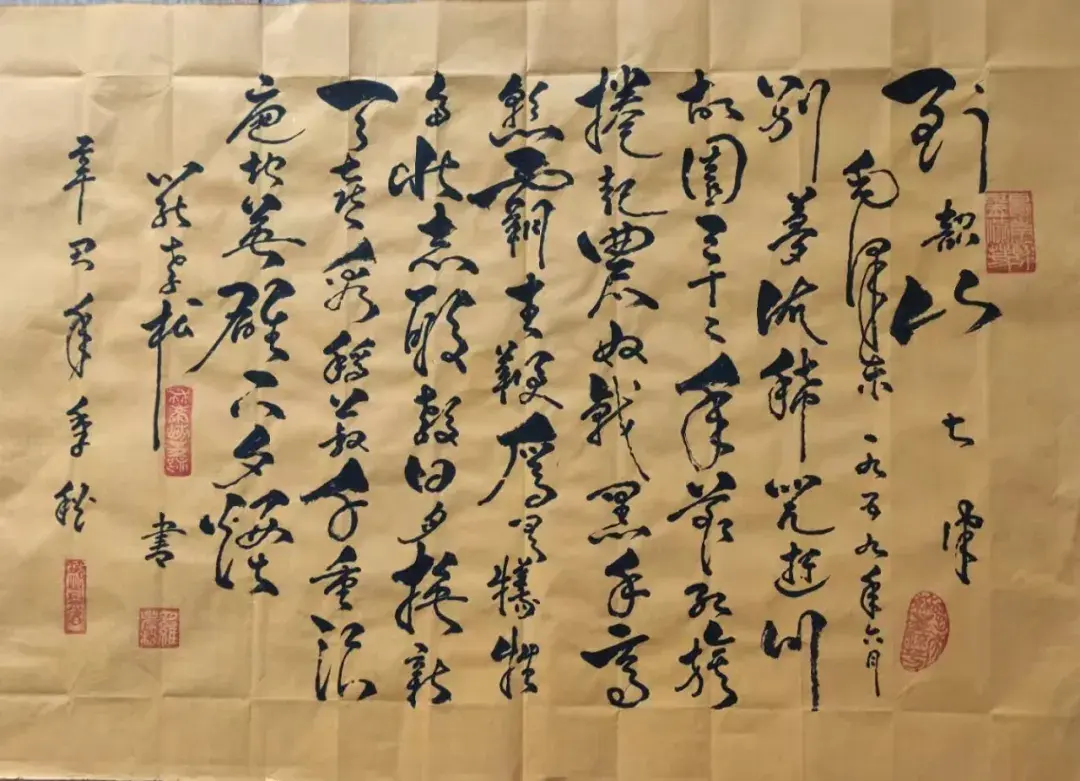 到韶山 七律
毛泽东 一九五九年六月
别夢依稀咒逝川
故園三十二年前紅旗
捲起農奴戟黑手高
懸霸主鞭為有犧牲
多壯志敢教日月換新
天喜看稻菽千重浪
遍地英雄下夕煙
松 書
辛丑年季秋